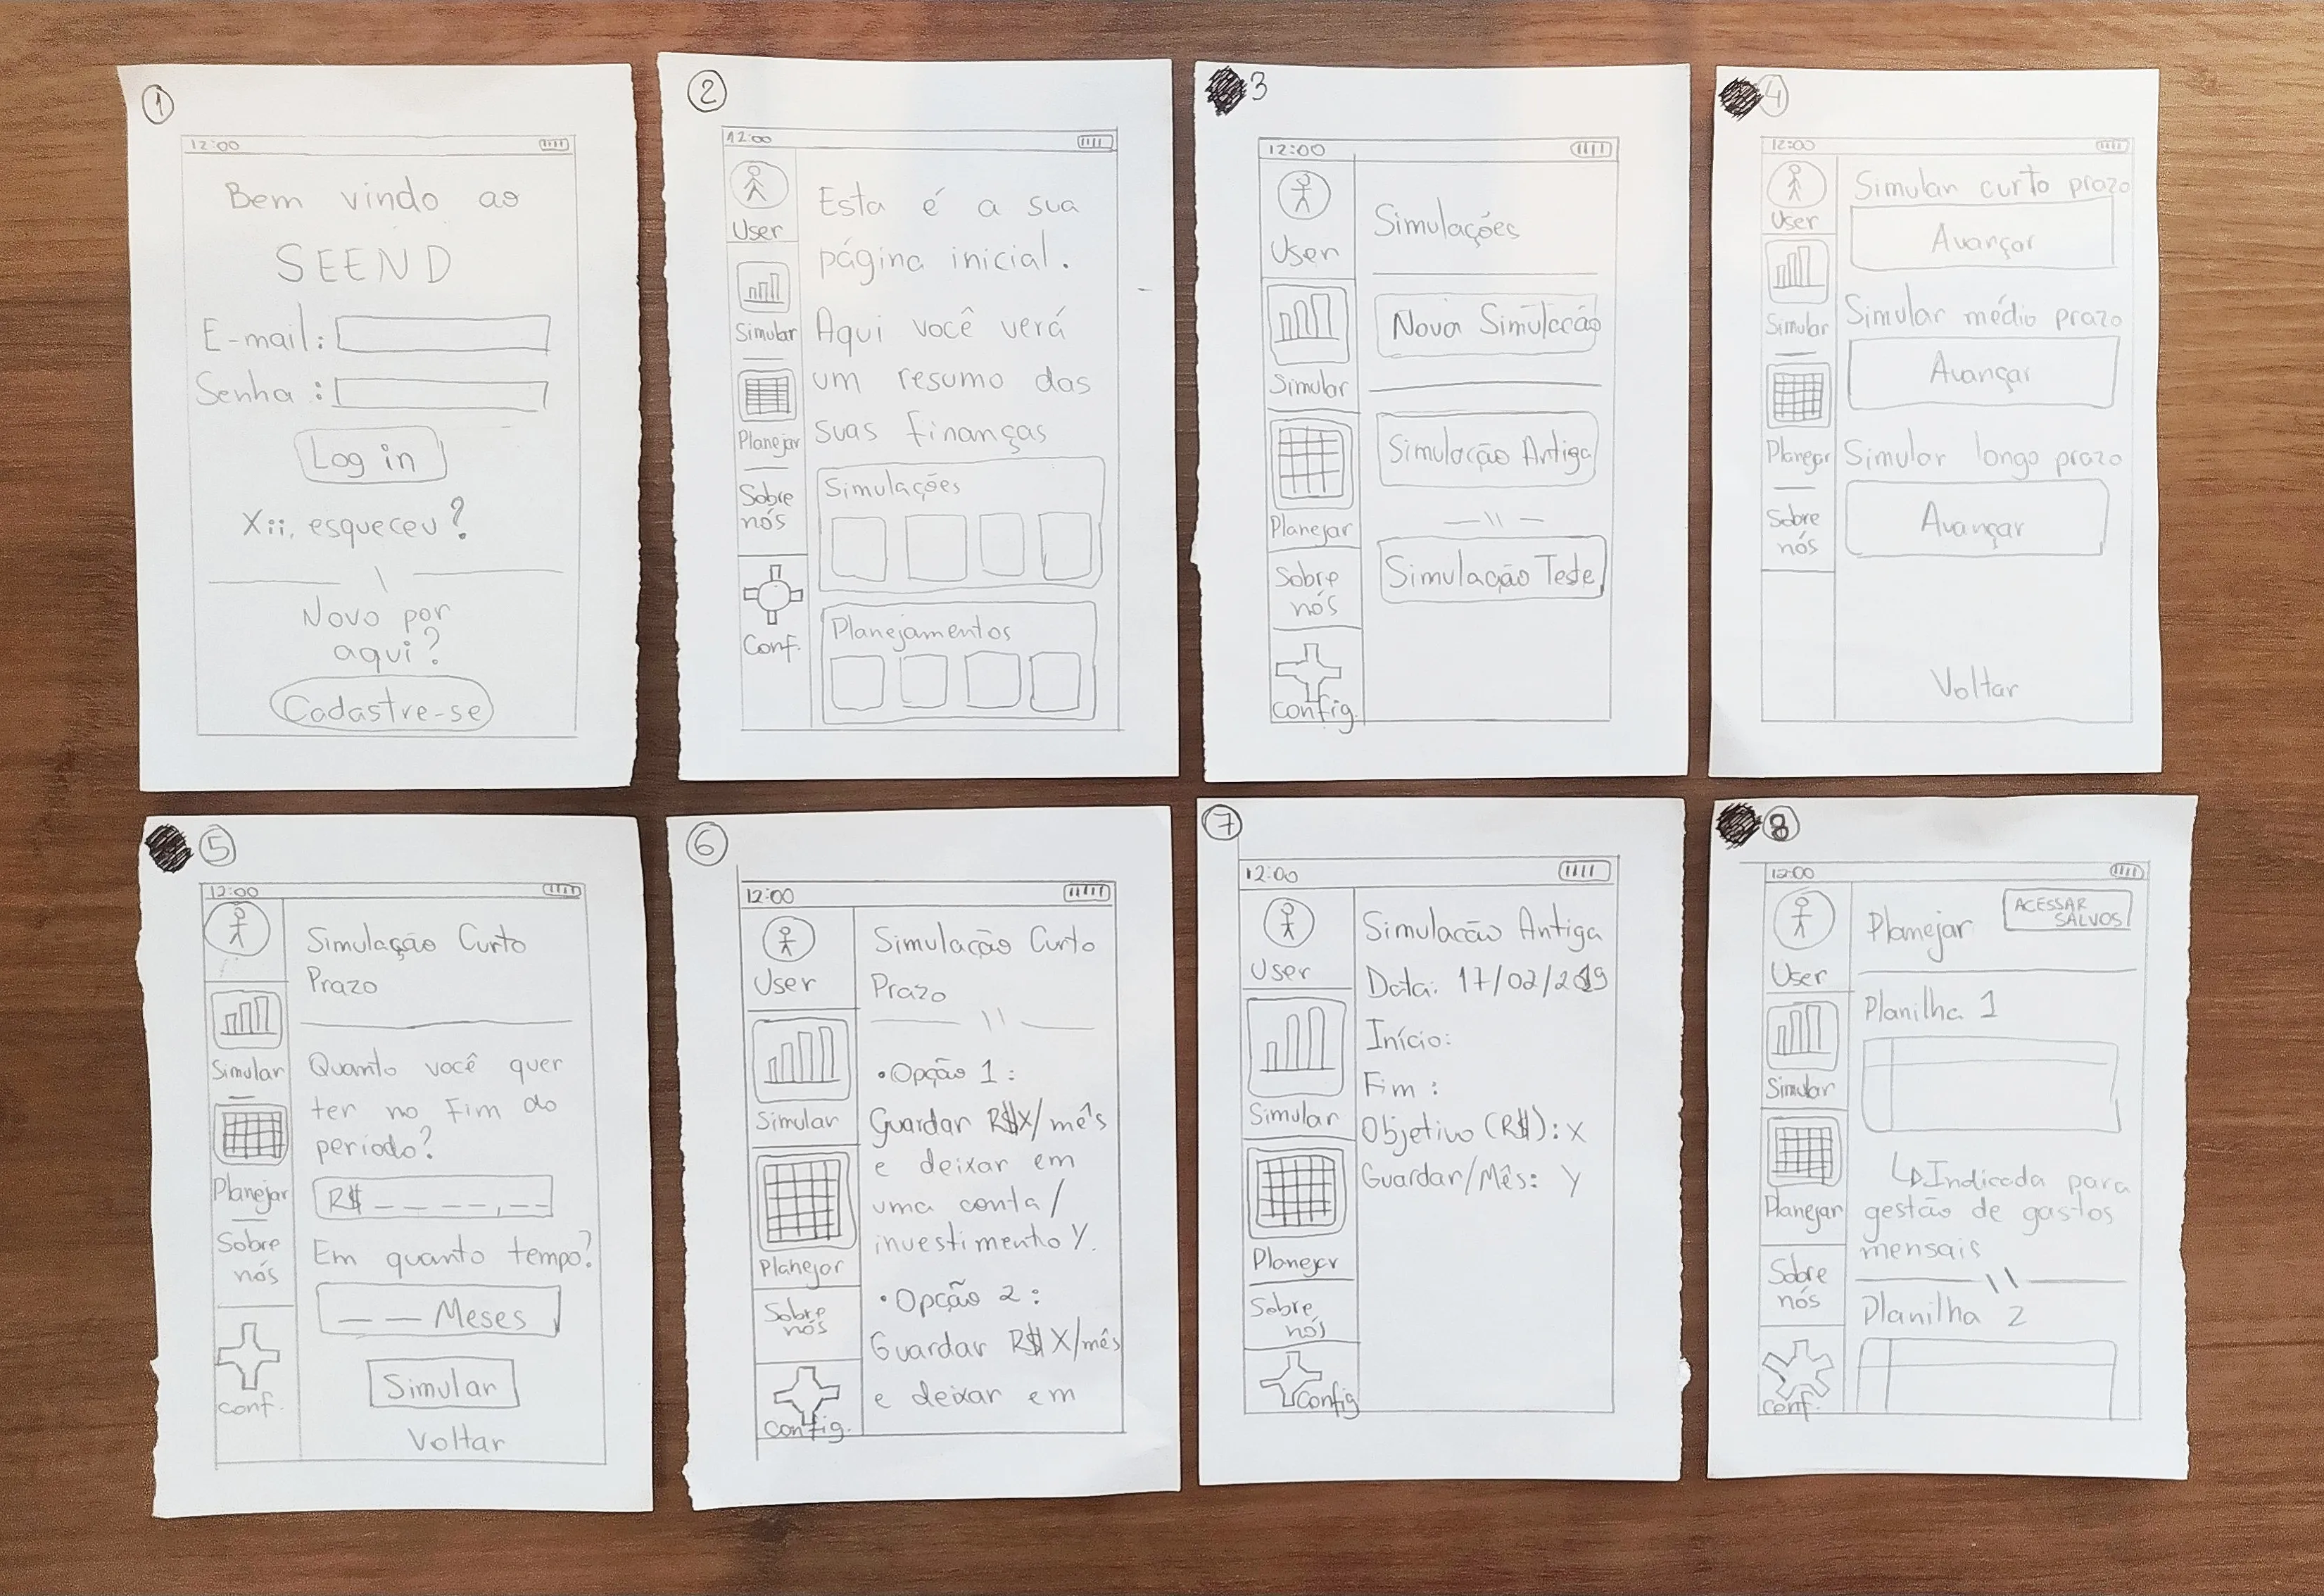 1
12:00
Bem vindo ao
SEEND
E-mail:
Senha:
Log in
Xii, esqueceu?
Novo por
aqui?
Cadastre-se
2
12:00
User
Simular
Planejar
Sobre
nós
Conf.
Esta é a sua
página inicial.
Aqui você verá
um resumo das
suas finanças
Simulações
Planejamentos
3
12:00
User
Simular
Planejar
Sobre
nós
Config.
Simulações
Nova Simulação
Simulação Antiga
Simulação Teste
4
12:00
User
Simular
Planejar
Sobre
nós
Simular curto prazo
Avançar
Simular médio prazo
Avançar
Simular longo prazo
Avançar
Voltar
5
12:00
Simular
Planejar
Sobre
nós
Conf.
Simulação Curto
Prazo
Quanto você quer
ter no fim do
período?
R$ _ _ _ _,_ _
Em quanto tempo?
_ _ Meses
Simular
Voltar
6
12:00
User
Simular
Planejar
Sobre
nós
Config.
Simulação Curto
Prazo
• Opção 1:
Guardar R$X/mês
e deixar em
uma conta/
investimento Y.
• Opção 2:
Guardar R$ X/mês
e deixar em
7
12:00
User
Simular
Planejar
Sobre
nós
Config
Simulação Antiga
Data: 17/02/2019
Início:
Fim:
Objetivo (R$): X
Guardar/Mês: Y
8
12:00
User
Simular
Planejar
Sobre
nós
Conf.
Planejar
ACESSAR
SALVOS
Planilha 1
Indicada para
gestão de gastos
mensais
Planilha 2